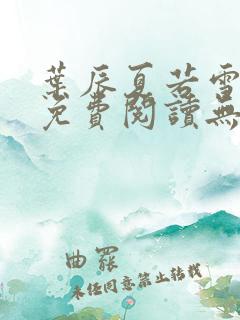 葉辰夏若雪
免費閱讀無
曲罷
未經同意禁止轉載